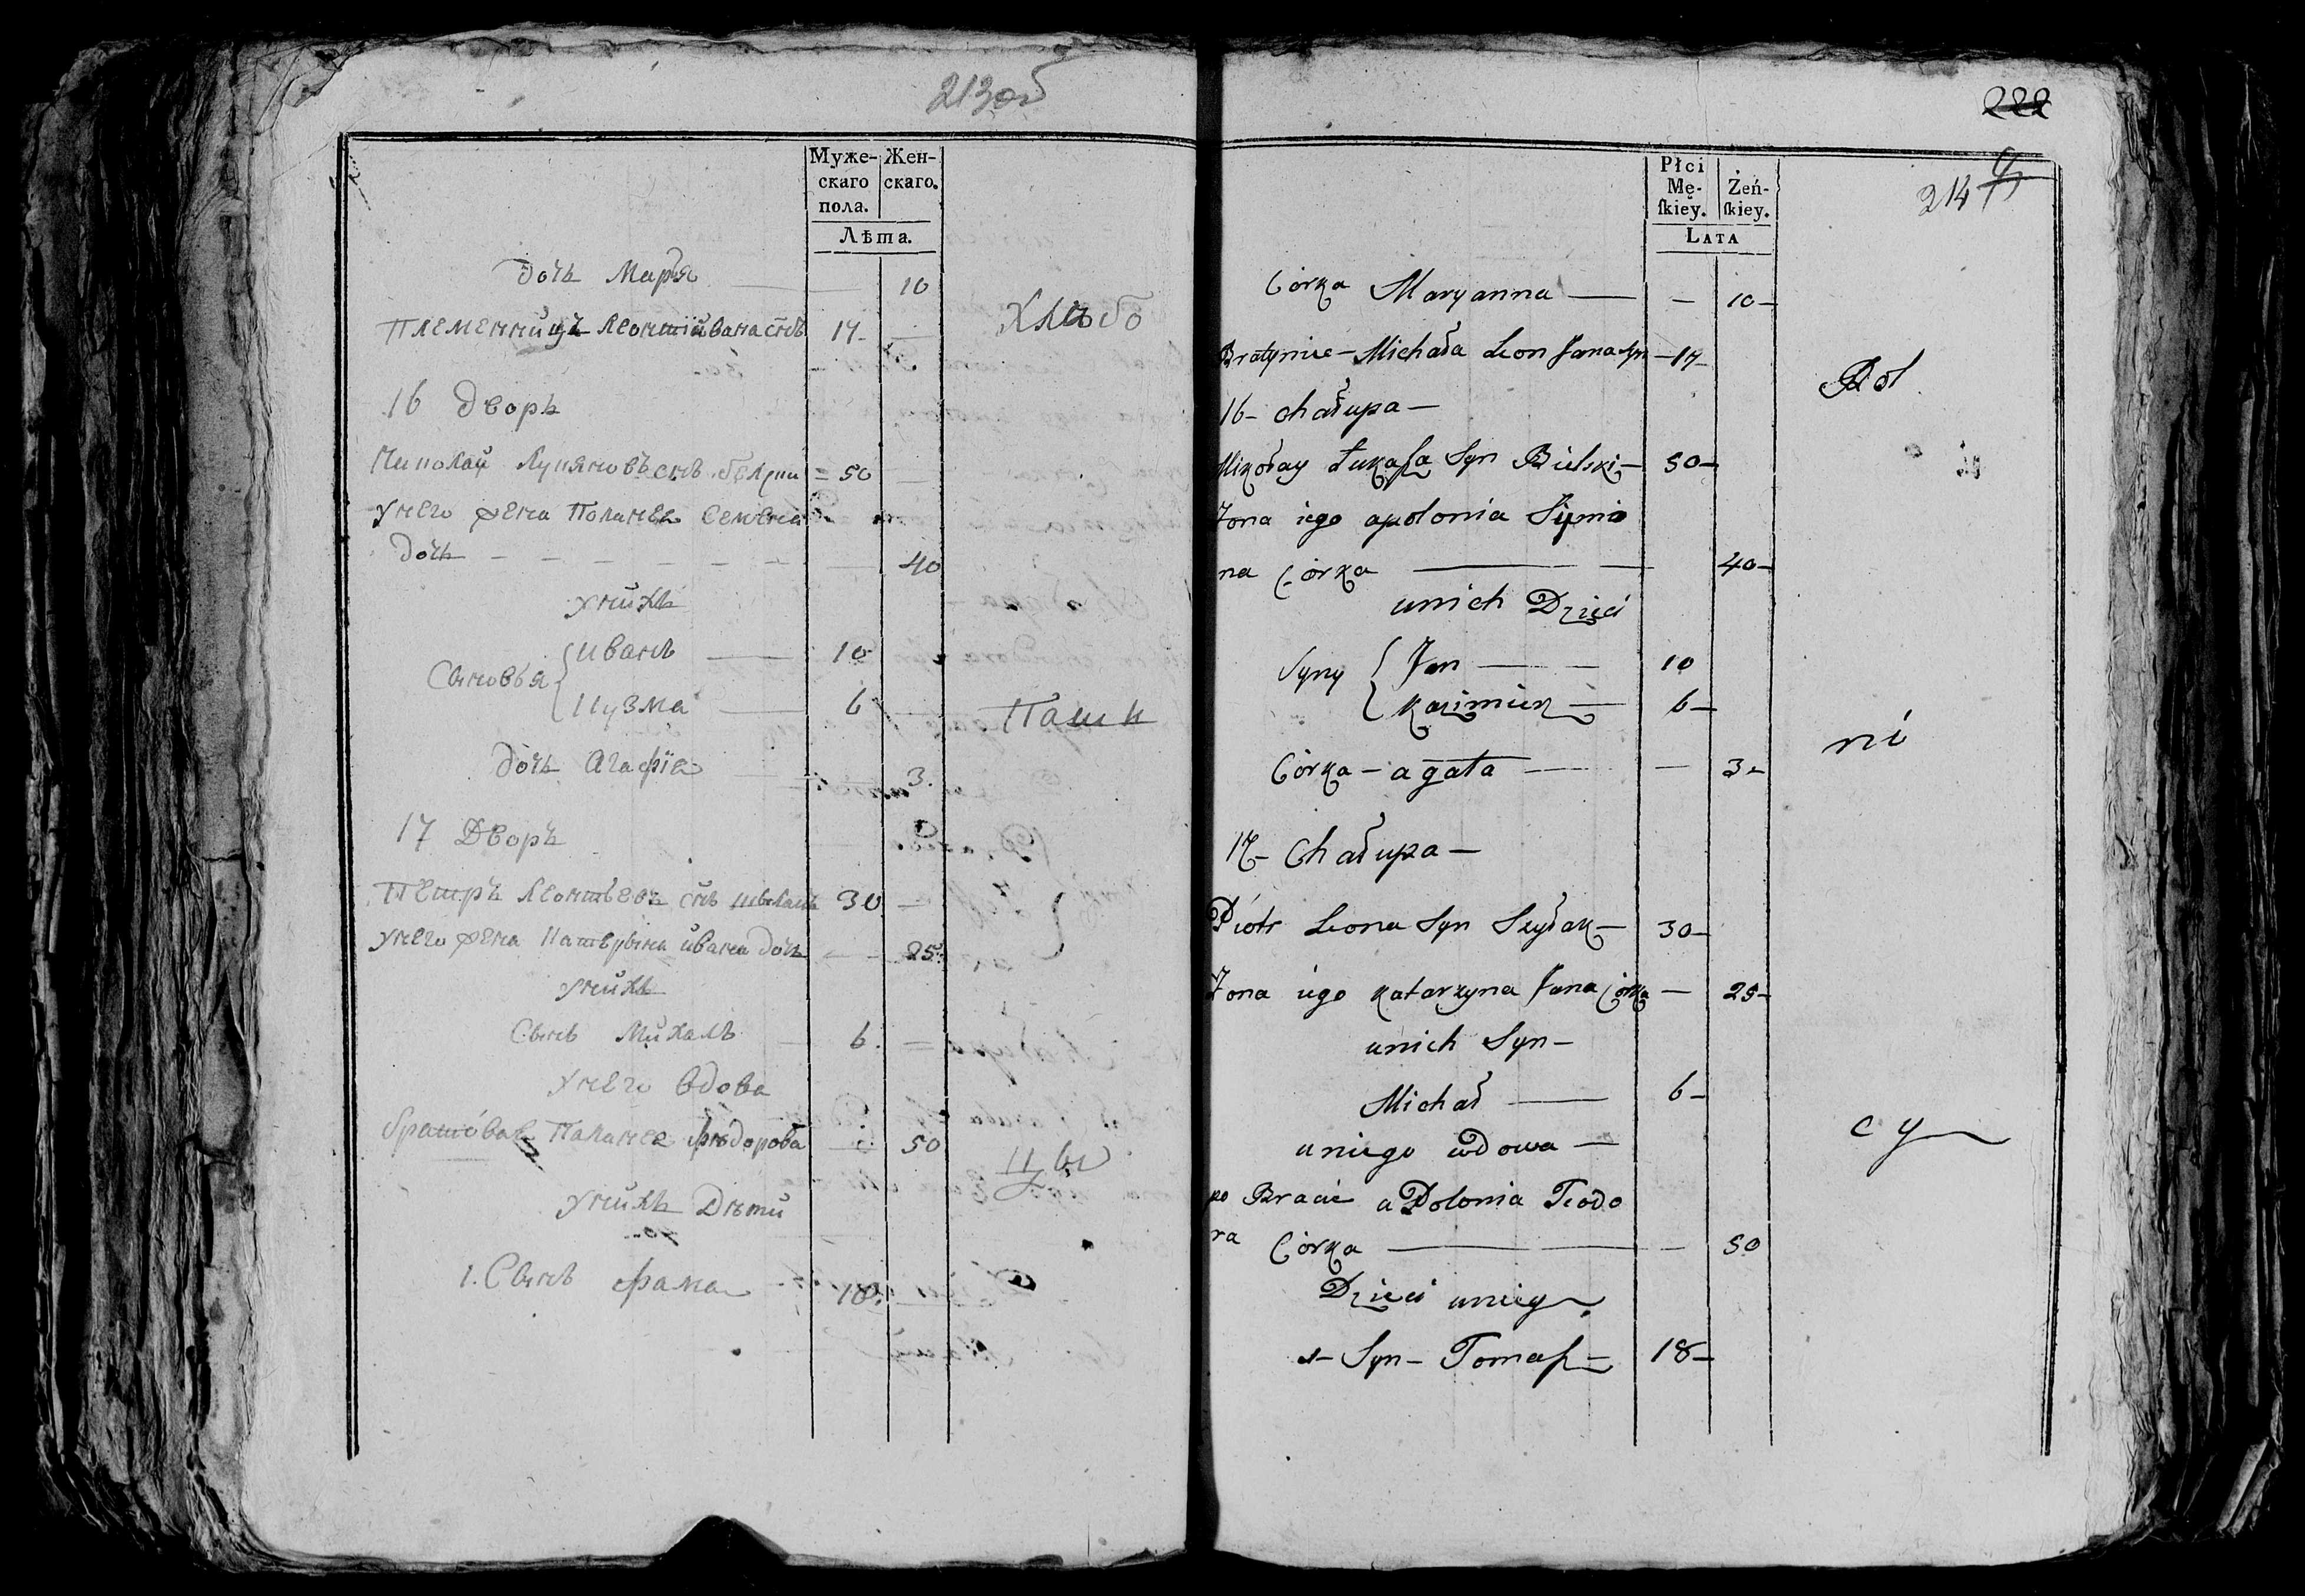 213об
Муже-
скаго
пола.
Жен-
скаго.
Лѣта.
дочь Марья 10
Племенникъ Леонтій Ивана снъ 17
Хлѣбо
16 дворъ
Николай Лукяновъ снъ = 50
у него жена Поланея Семена
дочь 40
у нихъ
Сыновья { Иванъ 10
Кузма 6
Паш
дочь Агафiя 3.
17 Дворъ
Петръ Леонтьевъ снъ 30
у него жена Катерына Ивана дочь 25
у нихъ
Сынъ Михалъ 6.
у него вдова
братовая Паланея Фѣдорова 50
цы
у нихъ Дѣти
1. Сынъ Фама 18.
222
214
Płci
Mę-
ſkiey.
Żeń-
ſkiey.
Lata
Córka Maryanna — — 10 —
Bratynie — Michała Leon Jana Syn — 17 —
Rol
16 — chałupa —
Mikołay Łukaſza Syn Bielski — 50 —
Żona iego apolonia Symio
na Córka — 40 —
u nich Dzieci
Syny { Jan — 10
Kazimierz — 6 —
ni
Córka — agata — — 3 —
17 — Chałupa —
Piotr Leona Syn — 30 —
Żona iego Katarzyna Jana Córka — 25 —
u nich Syn —
Michał — 6 —
u niego wdowa —
cy
po Bracie apolonia Teodo
ra Córka — — 50
Dzieci u niey
1 — Syn — Tomaſz — 18 —